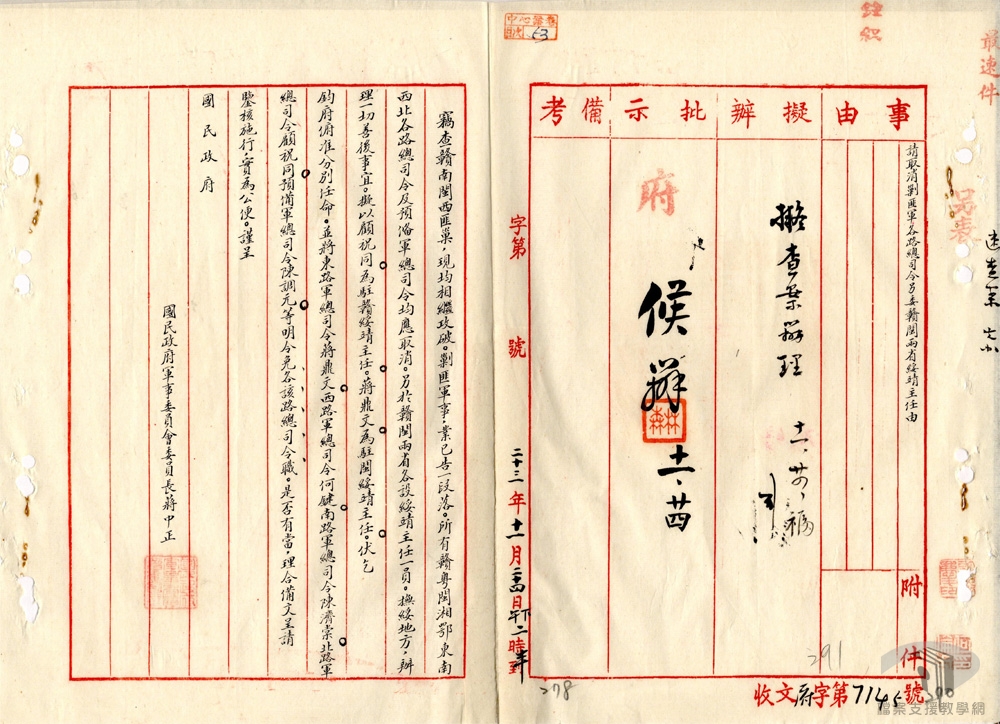 最速件
銓敘
中心檔卷
53
事由
擬辦
批示
備考
請取消剿匪軍各路總司令另委贛閩兩省綏靖主任由
附件
擬查案辦理
十一、廿四、
府
候辦
十一、廿四
291
收文府字第714號
字第　　號
二十三年十一月二十四日下午二時半到
278
竊查贛南閩西匪巢，現均相繼攻破。剿匪軍事，業已告一段落。所有贛粵閩湘鄂東南
西北各路總司令及預備軍總司令均應取消。另於贛閩兩省各設綏靖主任一員。撫綏地方，辦
理一切善後事宜。擬以顧祝同為駐贛綏靖主任。蔣鼎文為駐閩綏靖主任。伏乞
鈞府俯准分別任命。並將東路軍總司令蔣鼎文西路軍總司令何鍵南路軍總司令陳濟棠北路軍
總司令顧祝同預備軍總司令陳調元等明令免各該路總司令職。是否有當，理合備文呈請
鑒核施行，實為公便。謹呈
國民政府
國民政府軍事委員會委員長蔣中正
檔案支援教學網